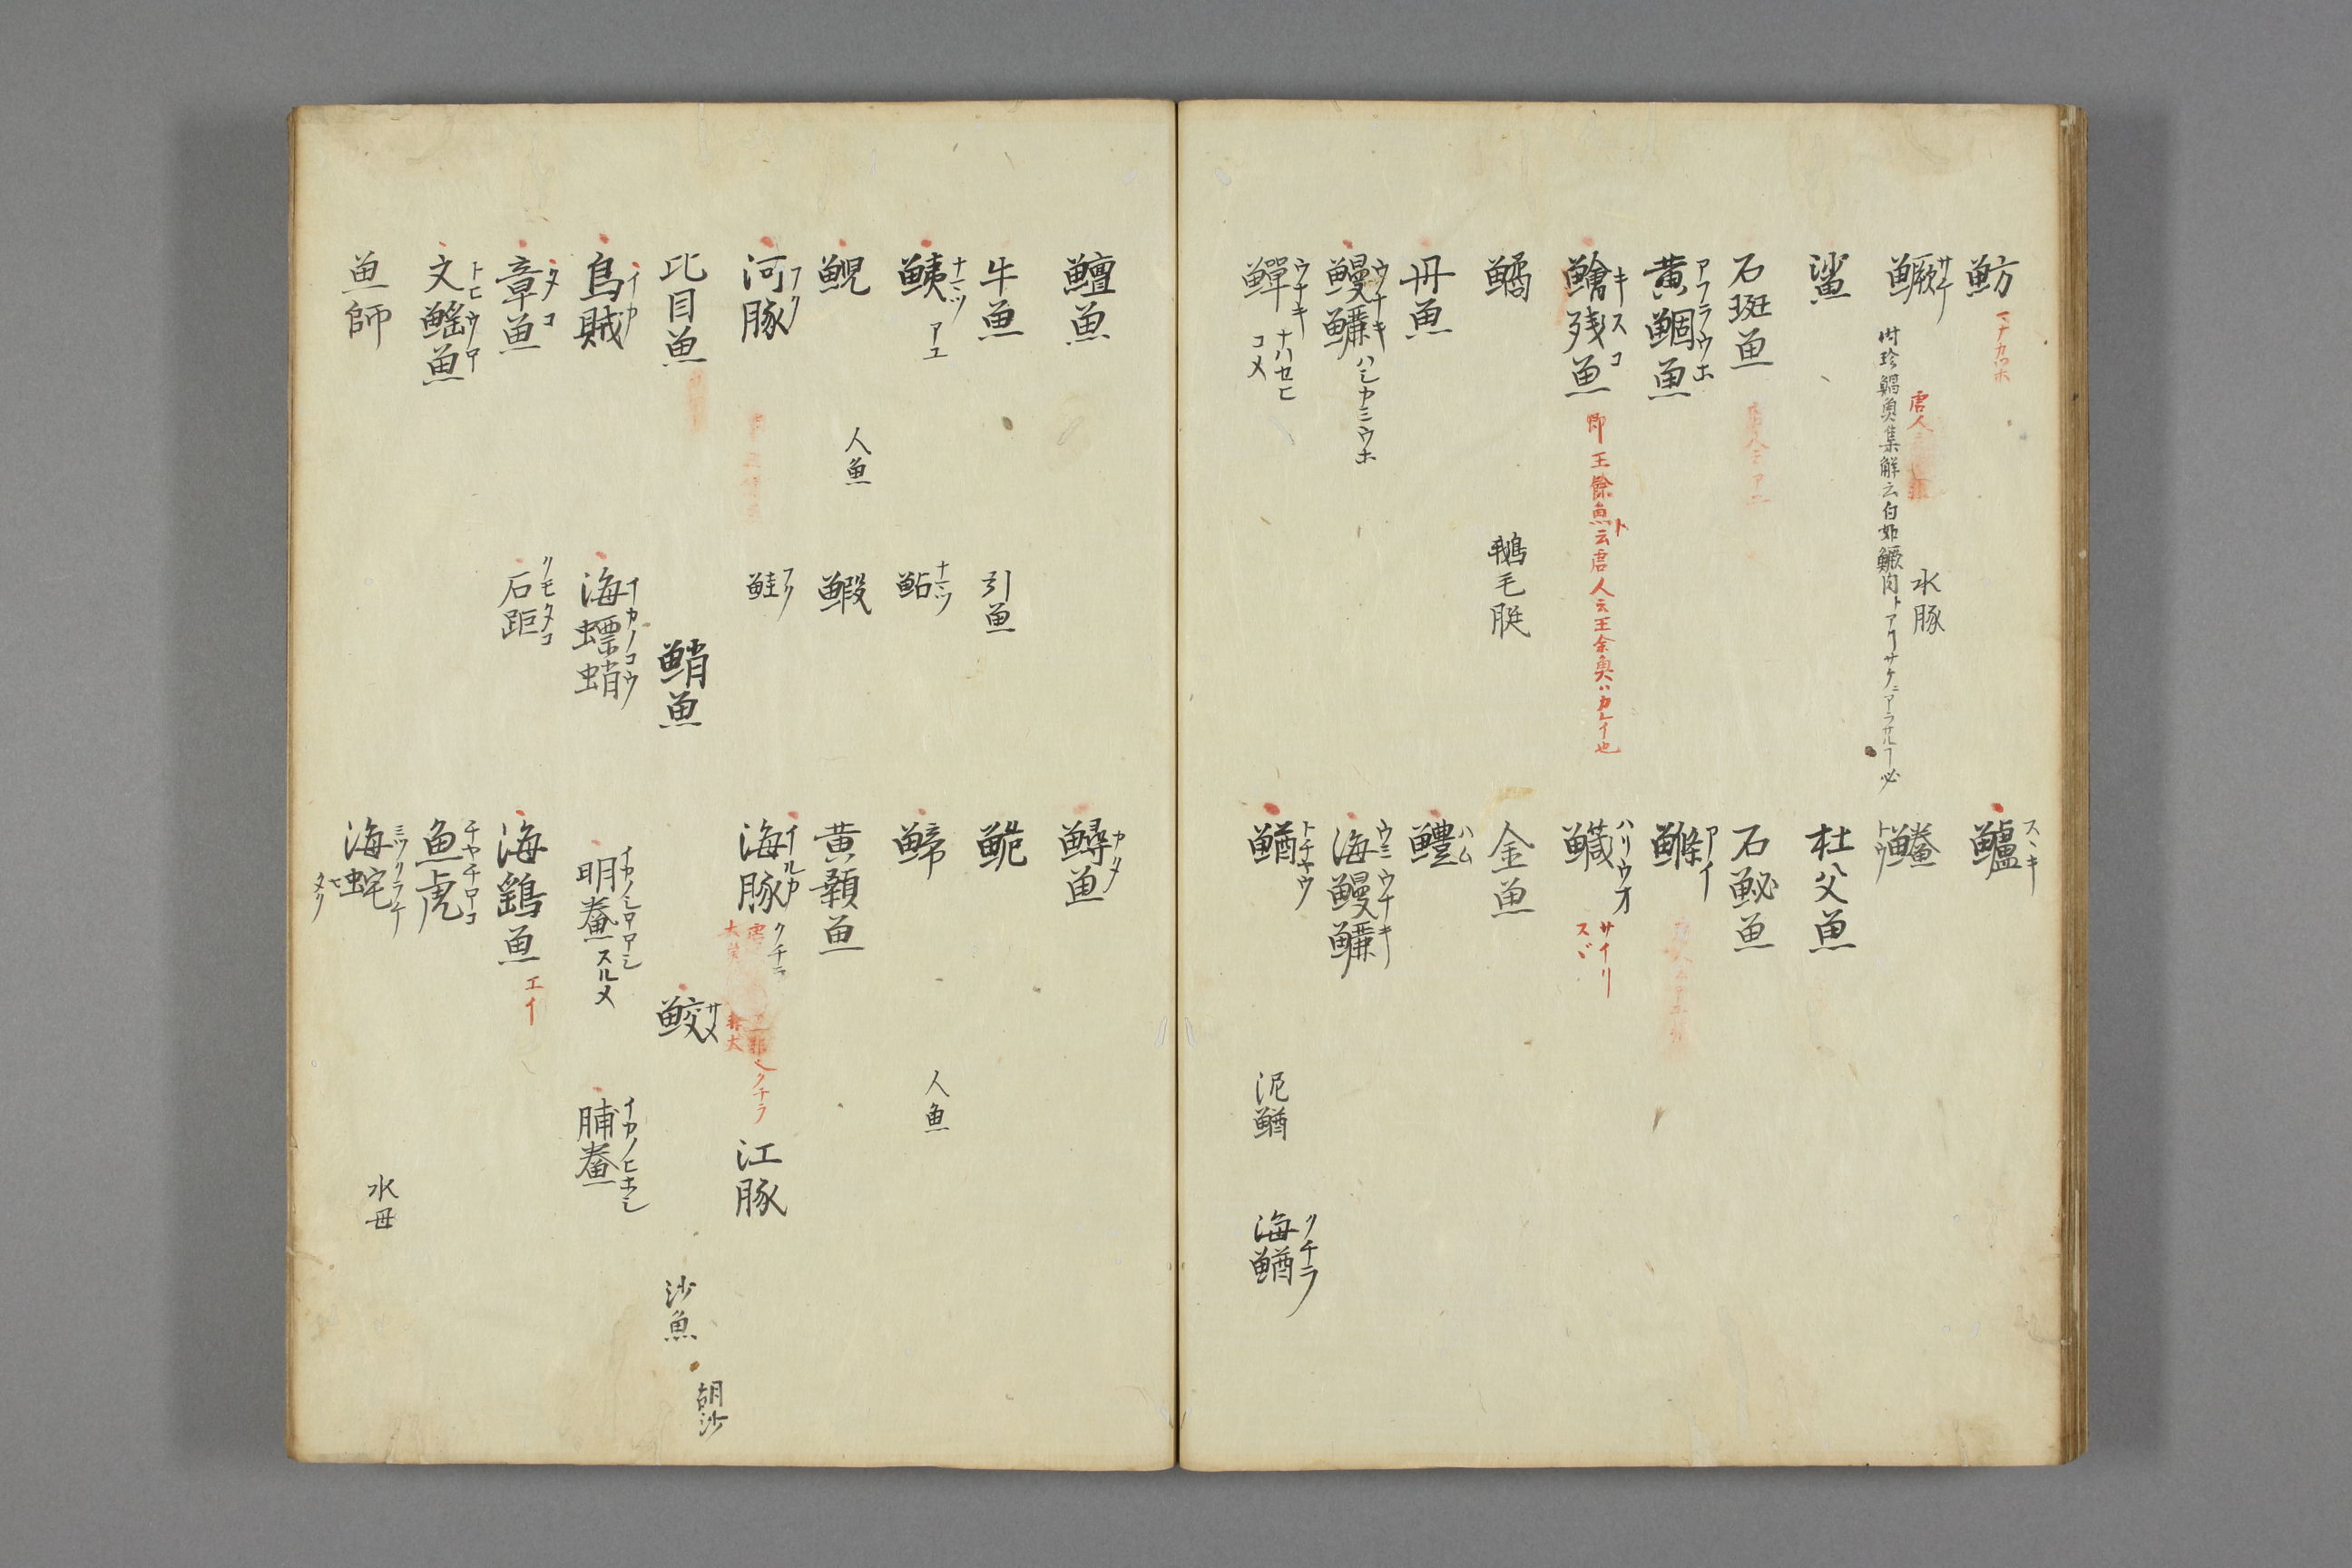 魴 マナカツホ
鱸 スヽキ
鱖 サケ
唐人
水豚
時珍鱖魚集解云白如鱖肉トアリサケニアラサルヿ必
鱶
鯊
杜父魚
石斑魚
石鮅魚
黄鯝魚 アフラウホ
鰷 アイ
鱠残魚 キスコ
即王餘魚ト云唐人云王余魚ハカレイ也
鱵 ハリウオ
サイリ
スヾ
鱊
鵝毛脡
金魚
丹魚
鱧 ハム
鰻鱺 ウナキ ハシカミウホ
海鰻鱺 ウミウナキ
鱓 ウナキ
ナハセヒ
コメ
鰌 トチヤウ
泥鰌
海鰌 クチラ
鱣魚
鱘魚 カタ
牛魚
引魚
鮠
鮧 ナマツ アユ
鮎 ナマツ
鮷
人魚
鯢
人魚
鰕
黄顙魚
河豚 フク
鮭 フク
海豚 イルカ クチラ
クチラ
江豚
比目魚
鮹魚
鮫 サメ
沙魚
胡沙
烏賊 イカ
海螵蛸 イカノコウ
明鯗 イカノシロホシ スルメ
脯鯗 イカノヒホシ
章魚 タコ
石距 クモタコ
海鷂魚 エイ
文鰩魚 トヒウヲ
魚虎 チヤチホコ
魚師
海蛇 ミツクラケ
水母